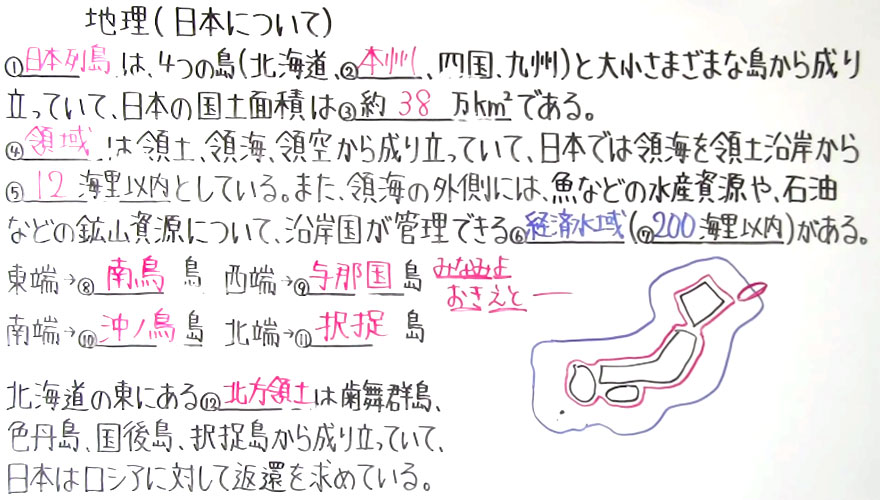 地理(日本について)
①日本列島は、4つの島(北海道、②本州、四国、九州)と大小さまざまな島から成り
立っていて、日本の国土面積は③約38万km²である。
④領域は領土、領海、領空から成り立っていて、日本では領海を領土沿岸から
⑤12海里以内としている。また、領海の外側には、魚などの水産資源や、石油
などの鉱山資源について、沿岸国が管理できる⑥経済水域(⑦200海里以内)がある。
東端→⑧南鳥島 西端→⑨与那国島 みなみよ
おきえと一
南端→⑩沖ノ鳥島 北端→⑪択捉島
北海道の東にある⑫北方領土は歯舞群島、
色丹島、国後島、択捉島から成り立っていて、
日本はロシアに対して返還を求めている。